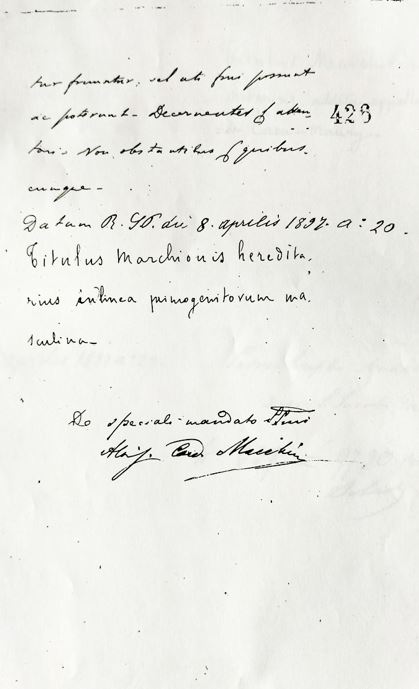 tur fruuntur, vel uti frui possunt
ac poterunt - Decernentes &
423
taris - Non obstantibus & quibus.
cumque -
Datum R. SP. die 8. aprilis 1897. a: 20.
Titulus Marchionis heredita,
rius in linea primogenitorum ma,
sculina -
De speciali mandato SSmi
Alois. Card. Macchi